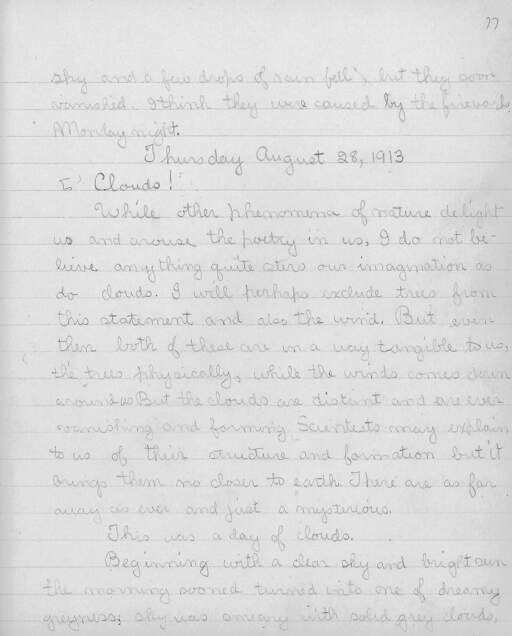 77
sky and a few drops of rain fell, but they soon
vanished. I think they were caused by the fireworks
Monday night.
Thursday August 28, 1913
Clouds!
While other phenomena of nature delight
us and arouse the poetry in us, I do not be-
lieve anything quite stirs our imagination as
do clouds. I will perhaps exclude trees from
this statement and also the wind. But even
then both of these are in a way tangible to us,
the trees physically, while the winds comes down
around us But the clouds are distant and are ever
vanishing and forming Scientists may explain
to us of their structure and formation but it
brings them no closer to earth. There are as far
away as ever and just a mysterious.
This was a day of clouds.
Beginning with a clear sky and bright sun
the morning sooned turned into one of dreamy
greyness; sky was with solid grey clouds,